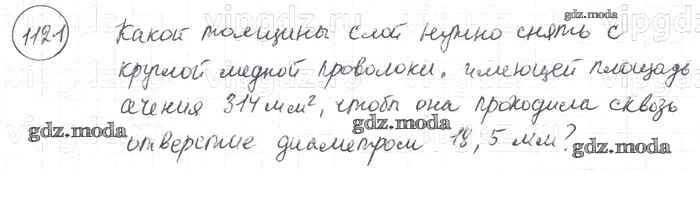 1121 Какой толщины слой нужно снять с
круглой медной проволоки, имеющей площадь
сечения 314 мм², чтобы она проходила сквозь
отверстие диаметром 18,5 мм?
gdz.moda
gdz.moda
gdz.moda
gdz.moda
gdz.moda